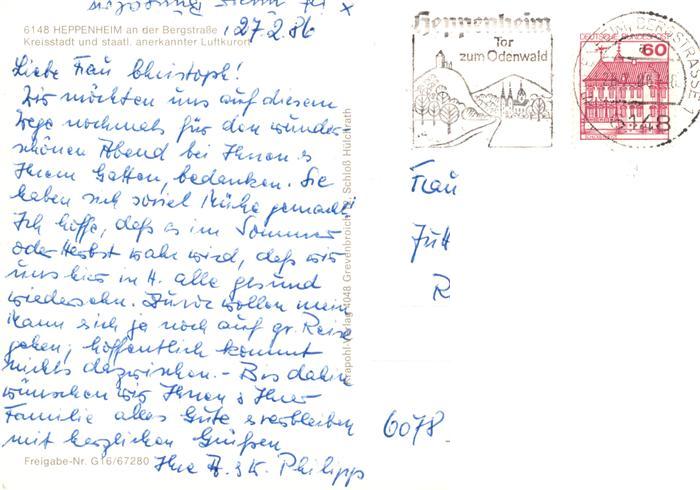 6148 HEPPENHEIM an der Bergstraße
Kreisstadt und staatl. anerkannter Luftkurort
27.2.86
Liebe Frau Christoph!
Wir möchten uns auf diesem
Wege nochmals für den wunder
schönen Abend bei Ihnen &
Ihrem Gatten, bedanken. Sie
haben sich soviel Mühe gemacht!
Ich hoffe, daß es im Sommer
oder Herbst wahr wird, daß wir
uns hier in H. alle gesund
wiedersehn. Zuvor wollen mein
Mann & ich ja noch auf gr. Reise
gehen, hoffentlich kommt
nichts dazwischen. - Bis dahin
wünschen wir Ihnen & Ihrer
Familie alles Gute & verbleiben
mit herzlichen Grüßen
Ihre & K. Philipps
Freigabe-Nr. G16/67280
Verlag 4048 Grevenbroich Schloß Hülchrath
Heppenheim
Tor
zum Odenwald
DEUTSCHE BUNDESPOST
60
BERGSTRASSE
6148
Frau
R
6078